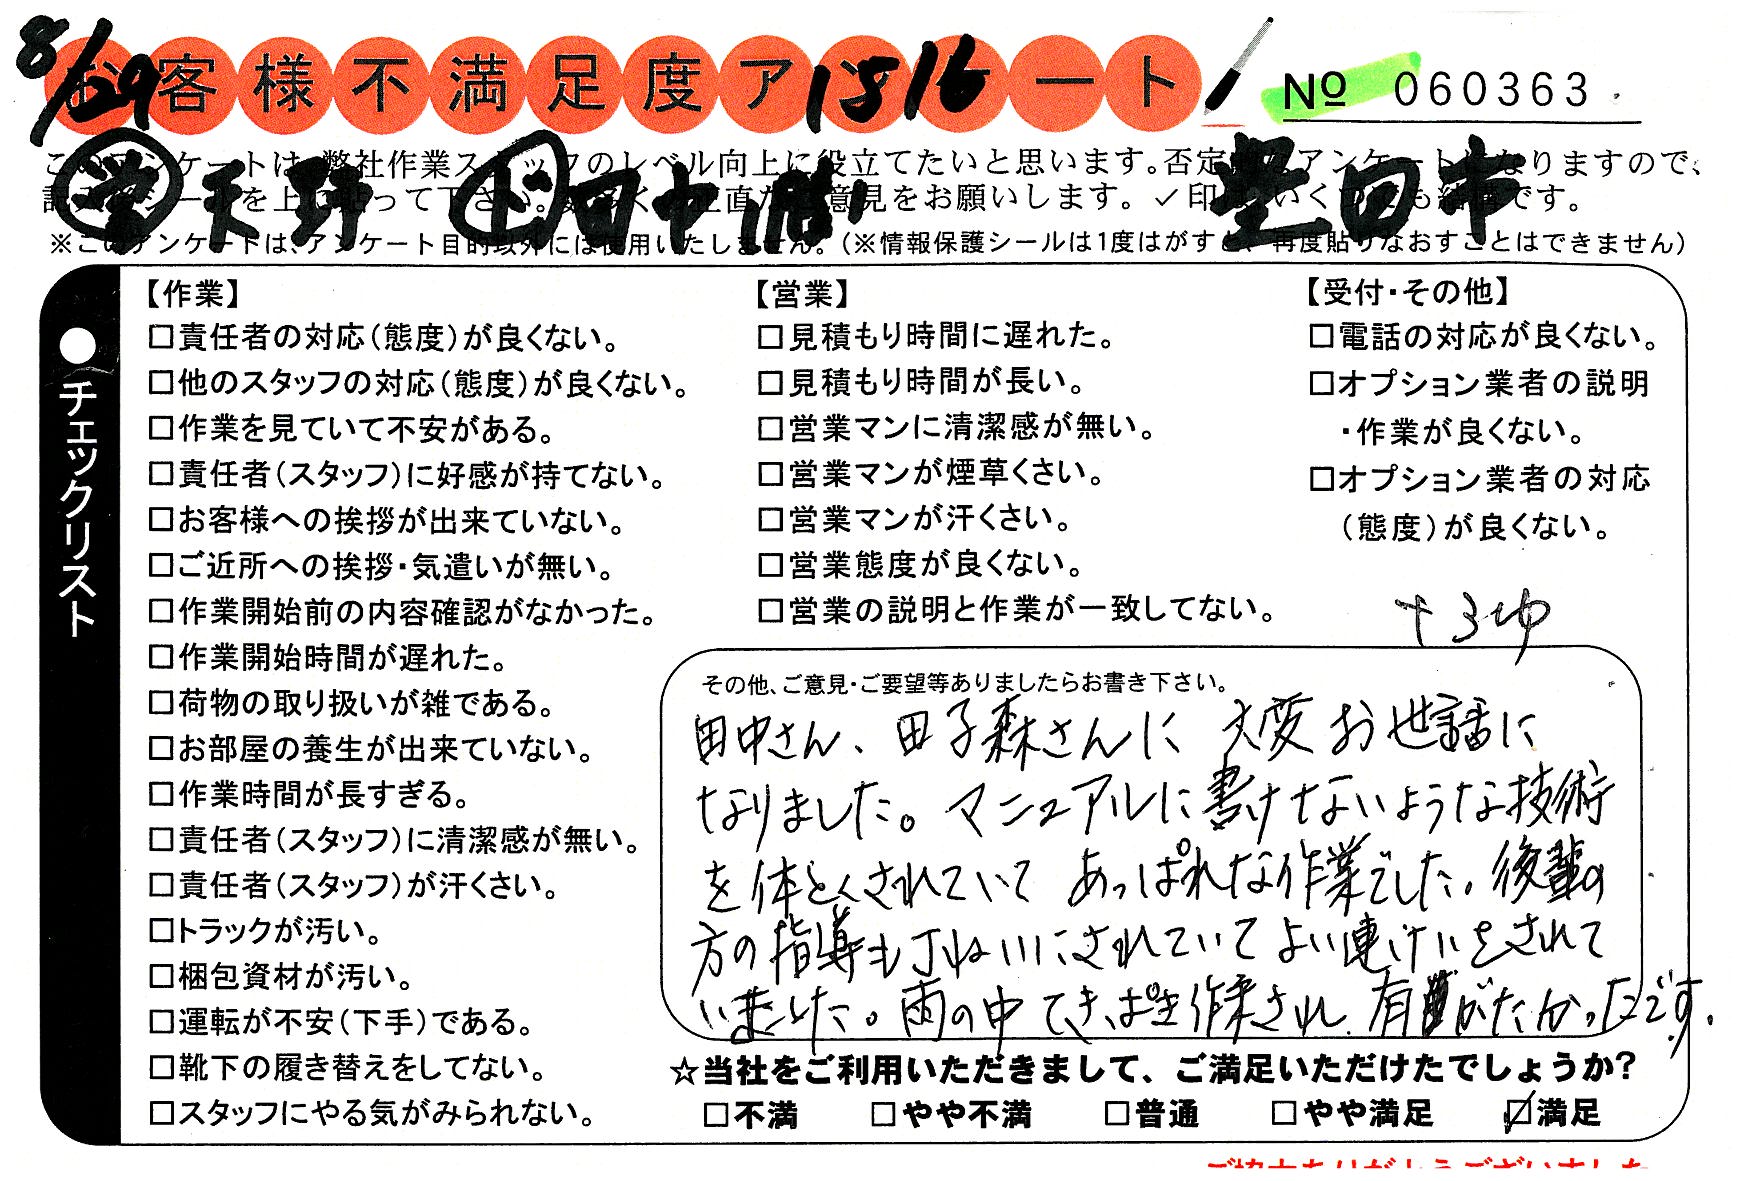 8/29
お客様不満足度アンケート
1816
No 060363
このアンケートは、弊社作業スタッフのレベル向上に役立てたいと思います。否定的なアンケートになりますので、
記入後シールを上に貼って下さい。数多くの正直な御意見をお願いします。✓印はいくつでも結構です。
営 天野 ド 田中
豊田市
※このアンケートは、アンケート目的以外には使用いたしません。(※情報保護シールは1度はがすと、再度貼りなおすことはできません)
●チェックリスト
【作業】
□責任者の対応(態度)が良くない。
□他のスタッフの対応(態度)が良くない。
□作業を見ていて不安がある。
□責任者(スタッフ)に好感が持てない。
□お客様への挨拶が出来ていない。
□ご近所への挨拶・気遣いが無い。
□作業開始前の内容確認がなかった。
□作業開始時間が遅れた。
□荷物の取り扱いが雑である。
□お部屋の養生が出来ていない。
□作業時間が長すぎる。
□責任者(スタッフ)に清潔感が無い。
□責任者(スタッフ)が汗くさい。
□トラックが汚い。
□梱包資材が汚い。
□運転が不安(下手)である。
□靴下の履き替えをしてない。
□スタッフにやる気がみられない。
【営業】
□見積もり時間に遅れた。
□見積もり時間が長い。
□営業マンに清潔感が無い。
□営業マンが煙草くさい。
□営業マンが汗くさい。
□営業態度が良くない。
□営業の説明と作業が一致してない。
【受付・その他】
□電話の対応が良くない。
□オプション業者の説明
・作業が良くない。
□オプション業者の対応
(態度)が良くない。
その他、ご意見・ご要望等ありましたらお書き下さい。
田中さん、田子森さんに 大変お世話に
なりました。マニュアルに書けないような技術
を体とくされていて あっぱれな作業でした。後輩の
方の指導も丁ねいにされていて よい連けいをされて
いました。雨の中 てきぱき作業され、有がたかったです。
☆当社をご利用いただきまして、ご満足いただけたでしょうか?
□不満 □やや不満 □普通 □やや満足 ☑満足
ご協力ありがとうございました